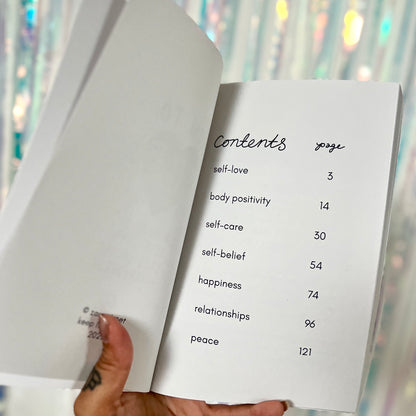 Contents page
self-love 3
body positivity 14
self-care 30
self-belief 54
happiness 74
relationships 96
peace 121
©
keep